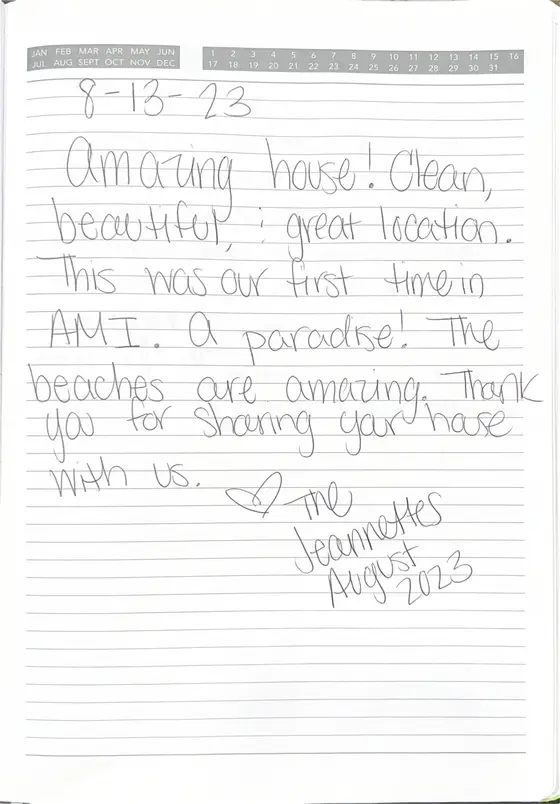 JAN FEB MAR APR MAY JUN
JUL AUG SEPT OCT NOV DEC
1 2 3 4 5 6 7 8 9 10 11 12 13 14 15 16
17 18 19 20 21 22 23 24 25 26 27 28 29 30 31
8-13-23
Amazing house! Clean,
beautiful, & great location.
This was our first time in
AMI. A paradise! The
beaches are amazing. Thank
you for sharing your house
with us. ♡ The
Jeannettes
August
2023